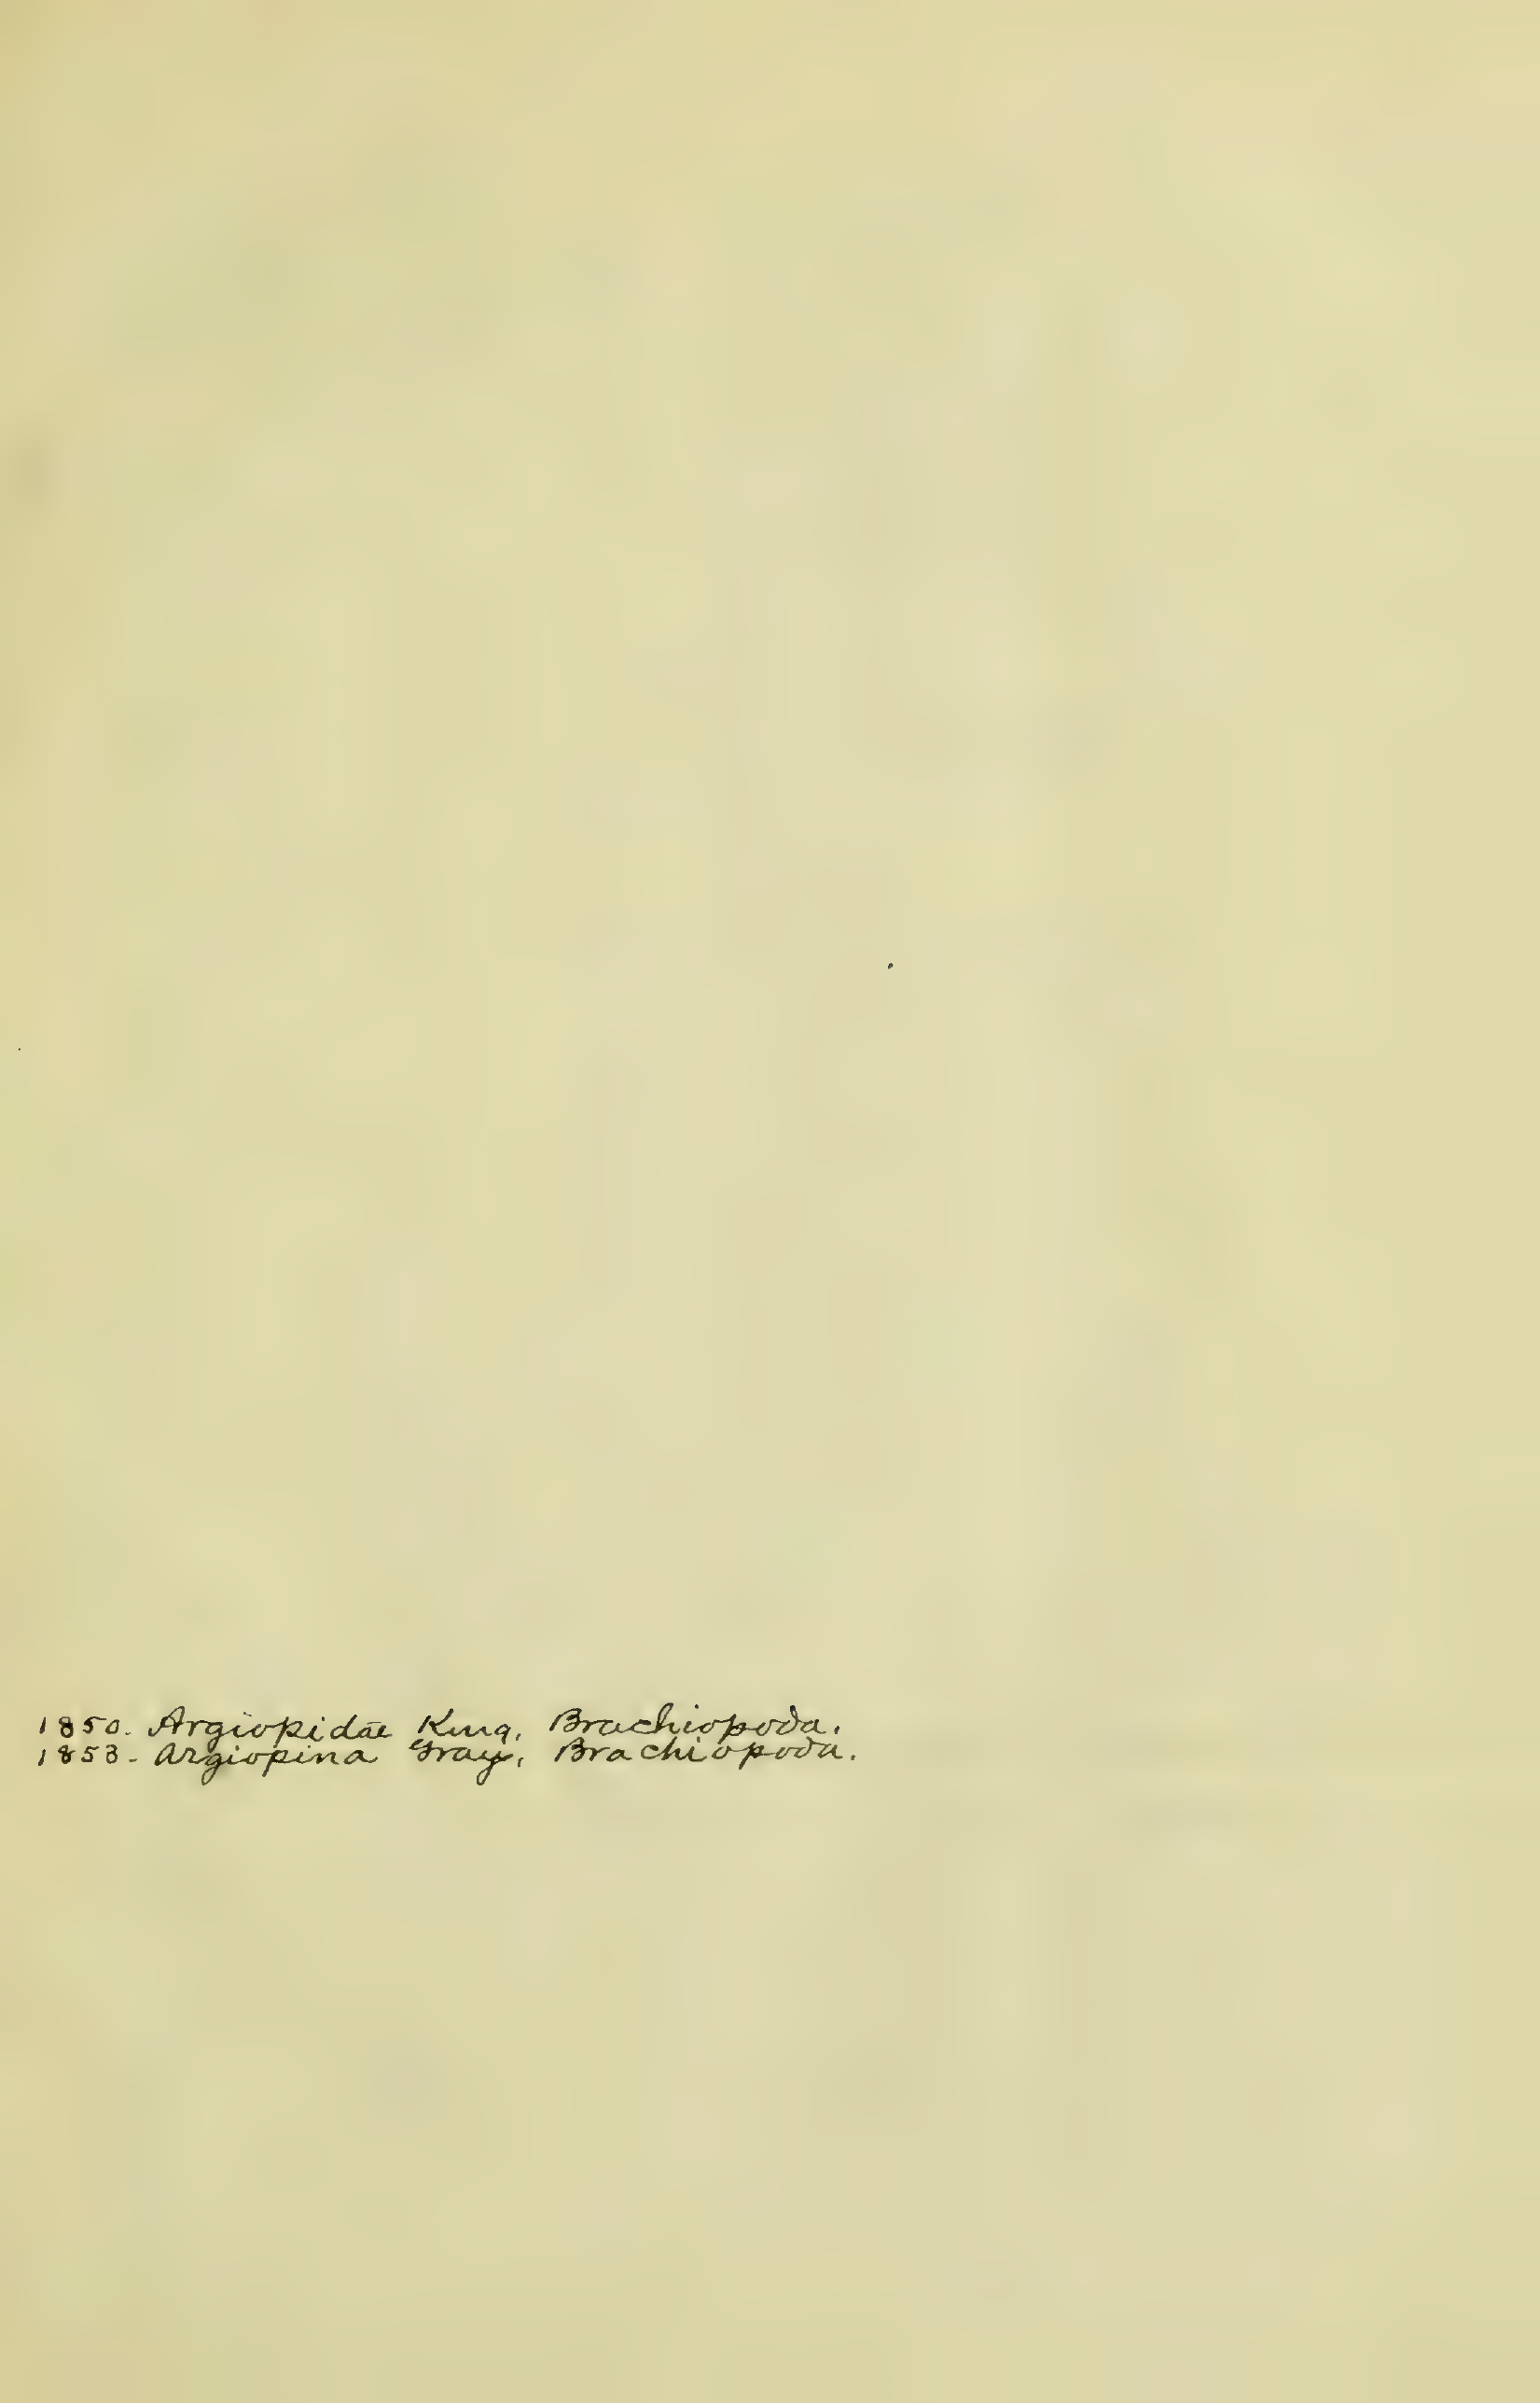 1850. Argiopidae King, Brachiopoda.
1853 - Argiopina Gray, Brachiopoda.